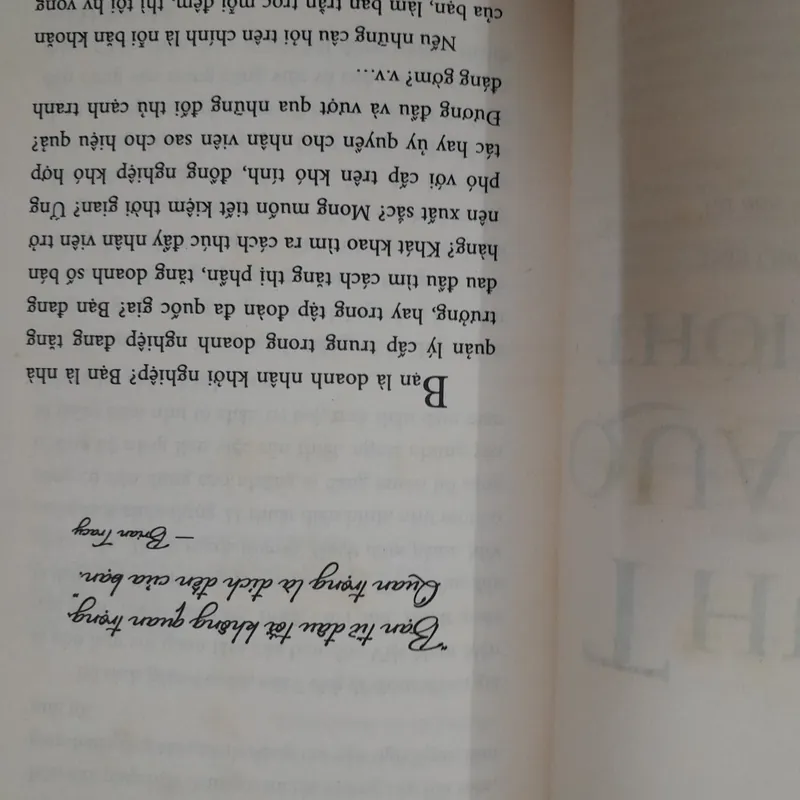 "Bạn từ đâu tới không quan trọng.
Quan trọng là đích đến của bạn."
— Brian Tracy
Bạn là doanh nhân khởi nghiệp? Bạn là nhà
quản lý cấp trung trong doanh nghiệp đang tăng
trưởng, hay trong tập đoàn đa quốc gia? Bạn đang
đau đầu tìm cách tăng thị phần, tăng doanh số bán
hàng? Khát khao tìm ra cách thức thúc đẩy nhân viên trở
nên xuất sắc? Mong muốn tiết kiệm thời gian? Ứng
phó với cấp trên khó tính, đồng nghiệp khó hợp
tác hay ủy quyền cho nhân viên sao cho hiệu quả?
Đương đầu và vượt qua những đối thủ cạnh tranh
đáng gờm? v.v...
Nếu những câu hỏi trên chính là nỗi băn khoăn
của bạn, làm bạn trằn trọc mỗi đêm, thì tôi hy vọng